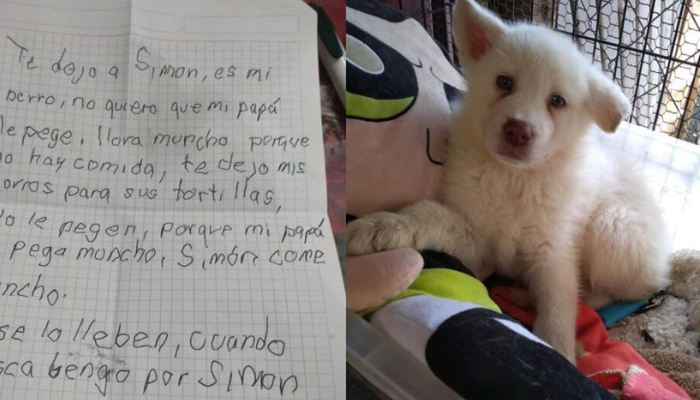 Te dejo a Simon, es mi
perro, no quiero que mi papá
le pege, llora muncho porque
no hay comida, te dejo mis
orros para sus tortillas,
le pegen, porque mi papá
pega muncho, Simón come
ncho.
se lo lleben, cuando
bengo por Simon